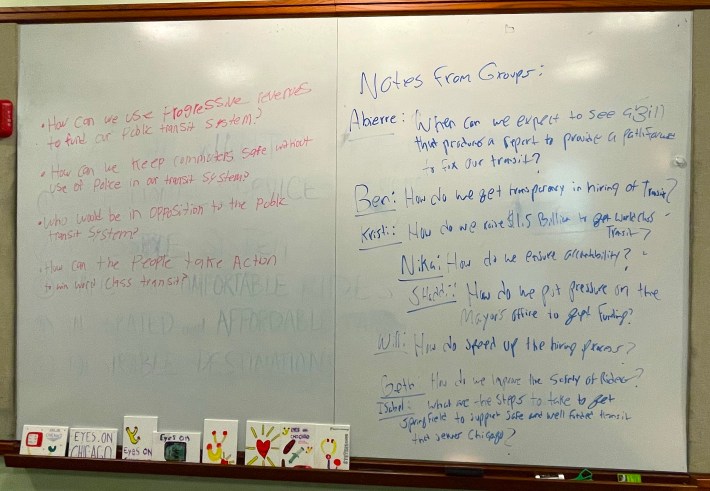 • How can we use Progressive revenues
to fund our public transit system?
• How can we keep commuters safe without
use of Police in our transit system?
• Who would be in opposition to the public
transit system?
• How can the People take Action
to win world class transit?
COMFORTABLE
AFFORDABLE
DESTINATIONS
Notes from Groups:
When can we expect to see a Bill
that produces a report to provide a path forward
to fix our transit?
Ben: How do we get transparency in hiring of Transit?
Kristi: How do we raise $1.5 Billion to get world class
Transit?
Nika: How do we ensure accountability?
How do we put pressure on the
Mayor's office to get Funding?
Will: How do speed up the hiring process?
How do we improve the safety of Rides?
Isabel: what are the steps to take to get
Springfield to support safe and well transit
that Chicago?
EYES ON
CHICAGO
EYES ON
EYES ON